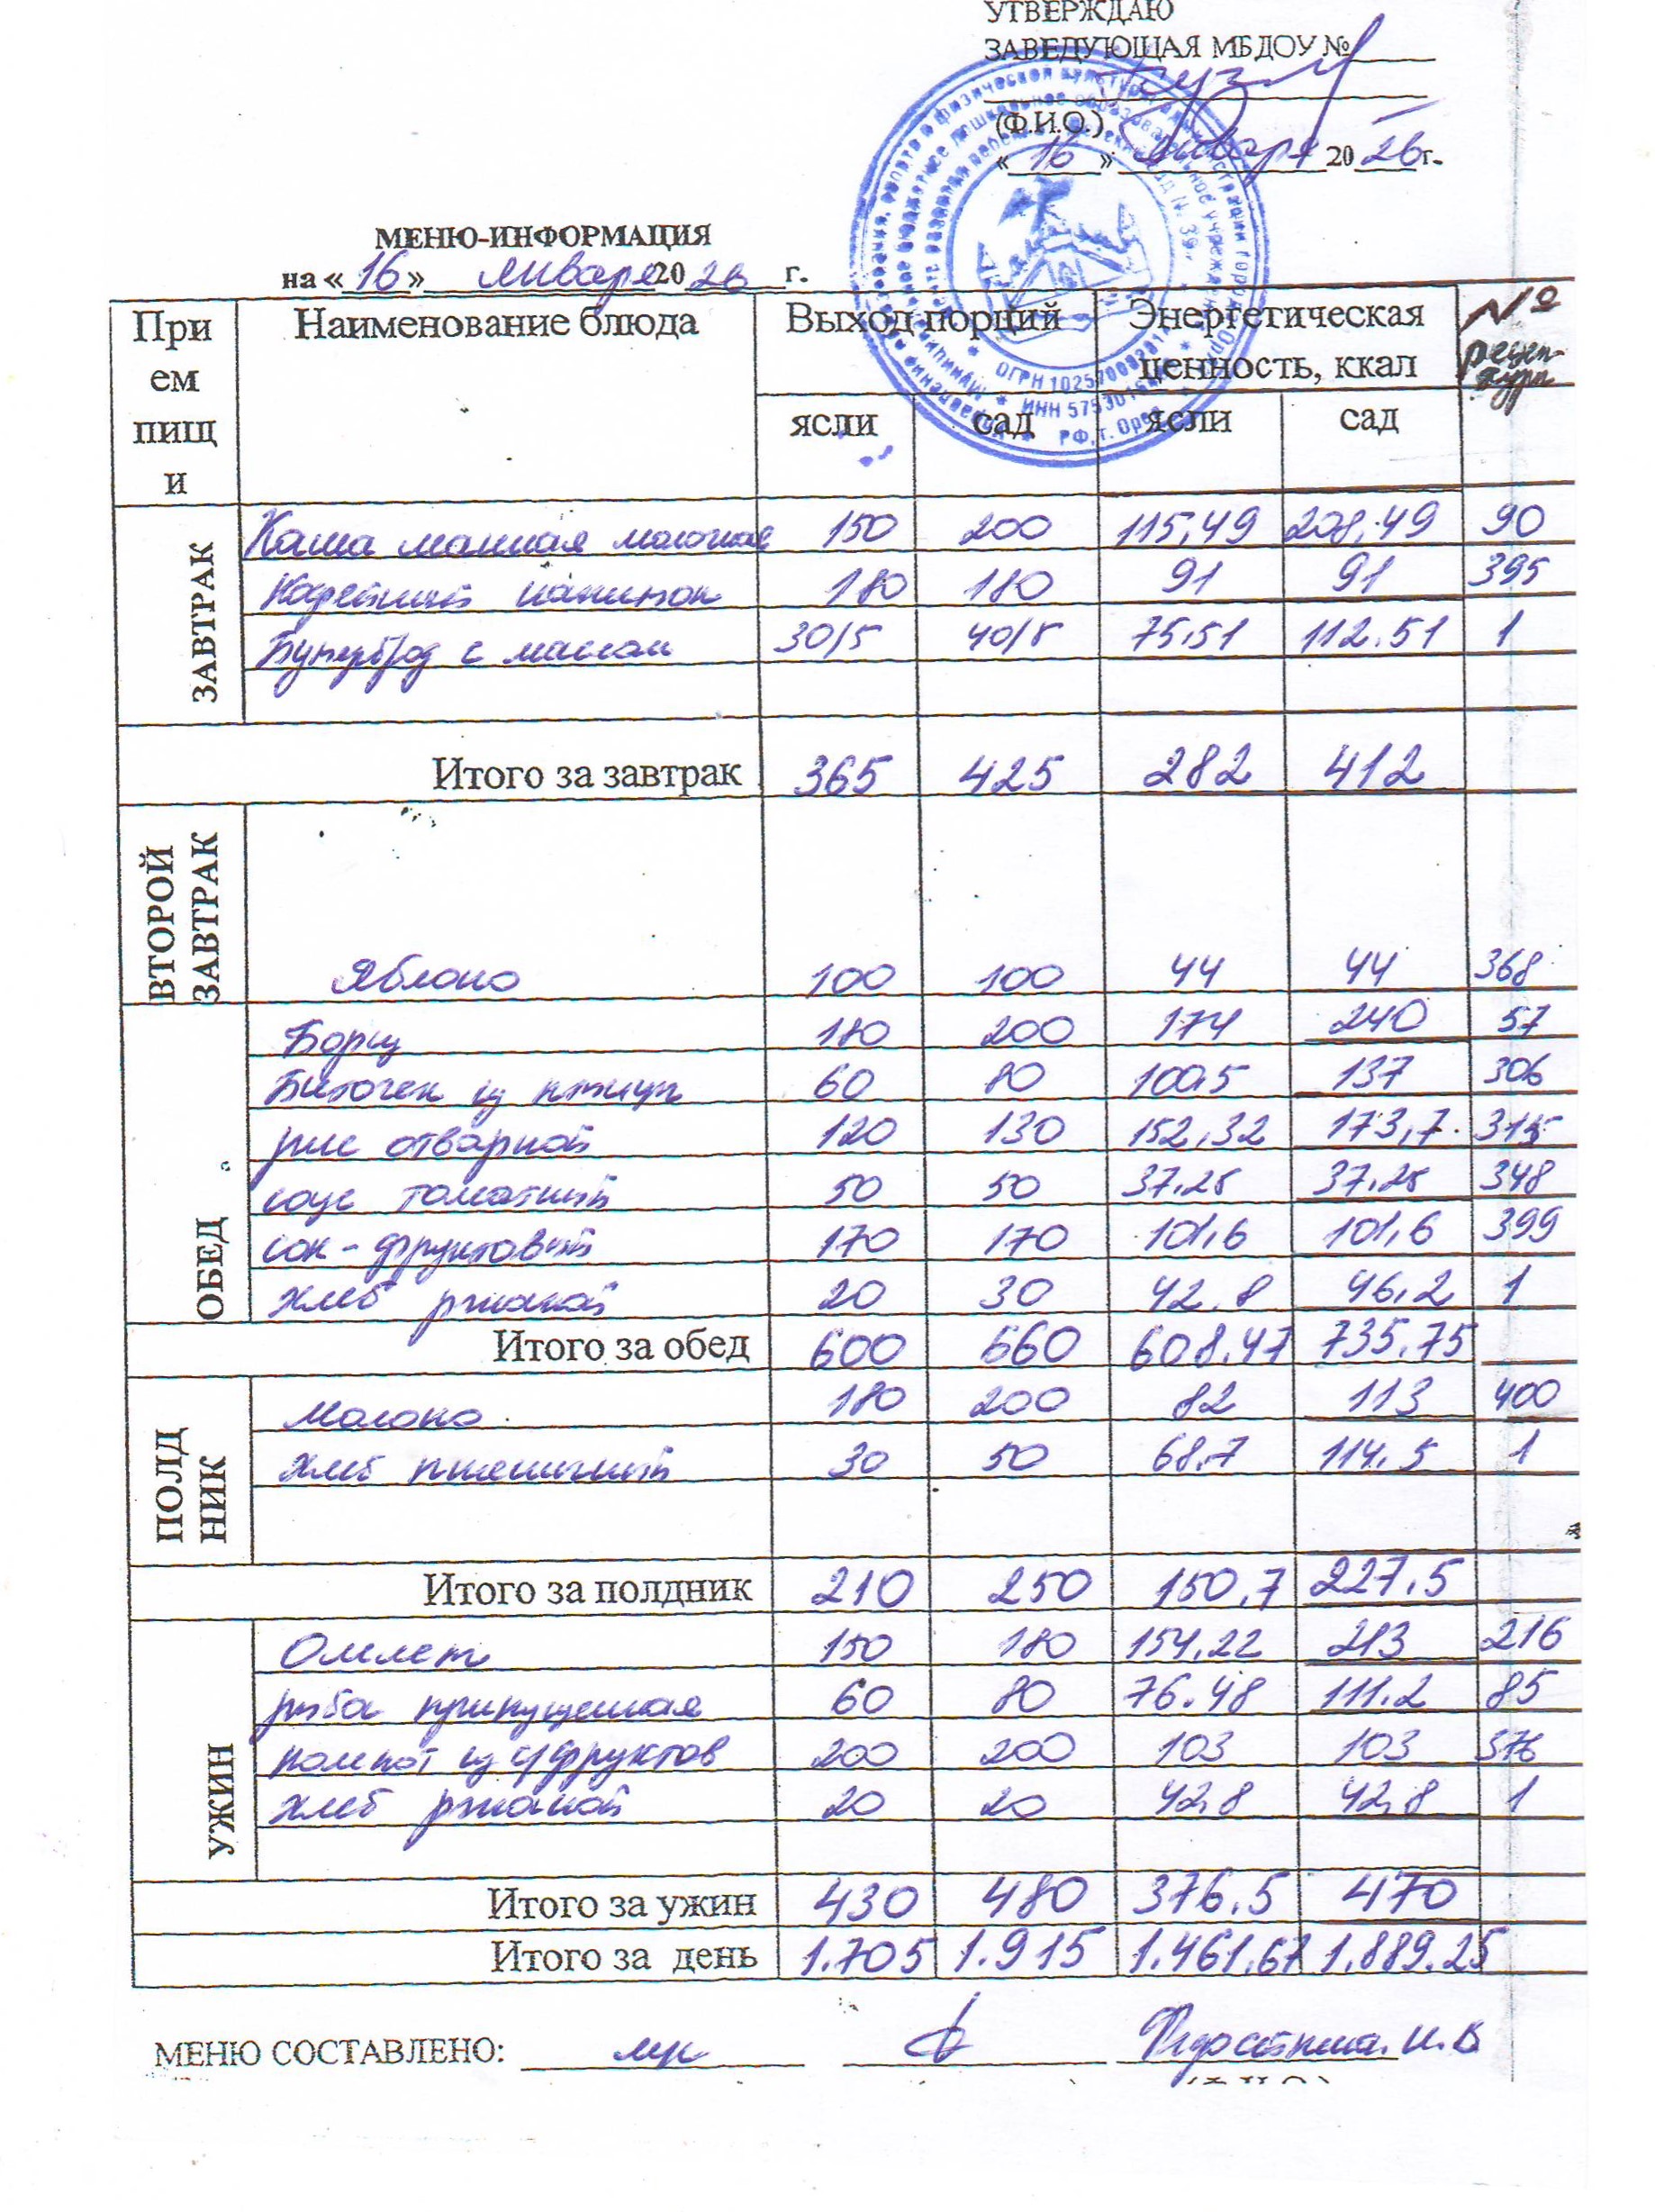 УТВЕРЖДАЮ
ЗАВЕДУЮЩАЯ МБДОУ №
(Ф.И.О.)
« 16 » января 20 26 г.
МЕНЮ-ИНФОРМАЦИЯ
на « 16 » января 20 26 г.
Прием пищи Наименование блюда Выход порций Энергетическая ценность, ккал № рецептуры
ясли сад ясли сад
ЗАВТРАК
Каша манная молочная 150 200 115,49 208,49 90
Кофейный напиток 180 180 91 91 395
Бутерброд с маслом 30/5 40/5 75.51 112.51 1
Итого за завтрак 365 425 282 412
ВТОРОЙ ЗАВТРАК
Яблоко 100 100 44 44 368
ОБЕД
Борщ 180 200 174 240 57
Биточек из птицы 60 80 100.5 137 306
рис отварной 120 130 152,32 173,7 315
соус томатный 50 50 37.25 37.25 348
сок-фруктовый 170 170 101,6 101,6 399
хлеб ржаной 20 30 42.8 46.2 1
Итого за обед 600 660 608.47 735.75
ПОЛДНИК
Молоко 180 200 82 113 400
хлеб пшеничный 30 50 68.7 114.5 1
Итого за полдник 210 250 150.7 227.5
УЖИН
Омлет 150 180 154.22 213 216
рыба припущенная 60 80 76.48 111.2 85
компот из с/фруктов 200 200 103 103 376
хлеб ржаной 20 20 42,8 42,8 1
Итого за ужин 430 480 376.5 470
Итого за день 1.705 1.915 1.461.67 1.889.25
МЕНЮ СОСТАВЛЕНО: